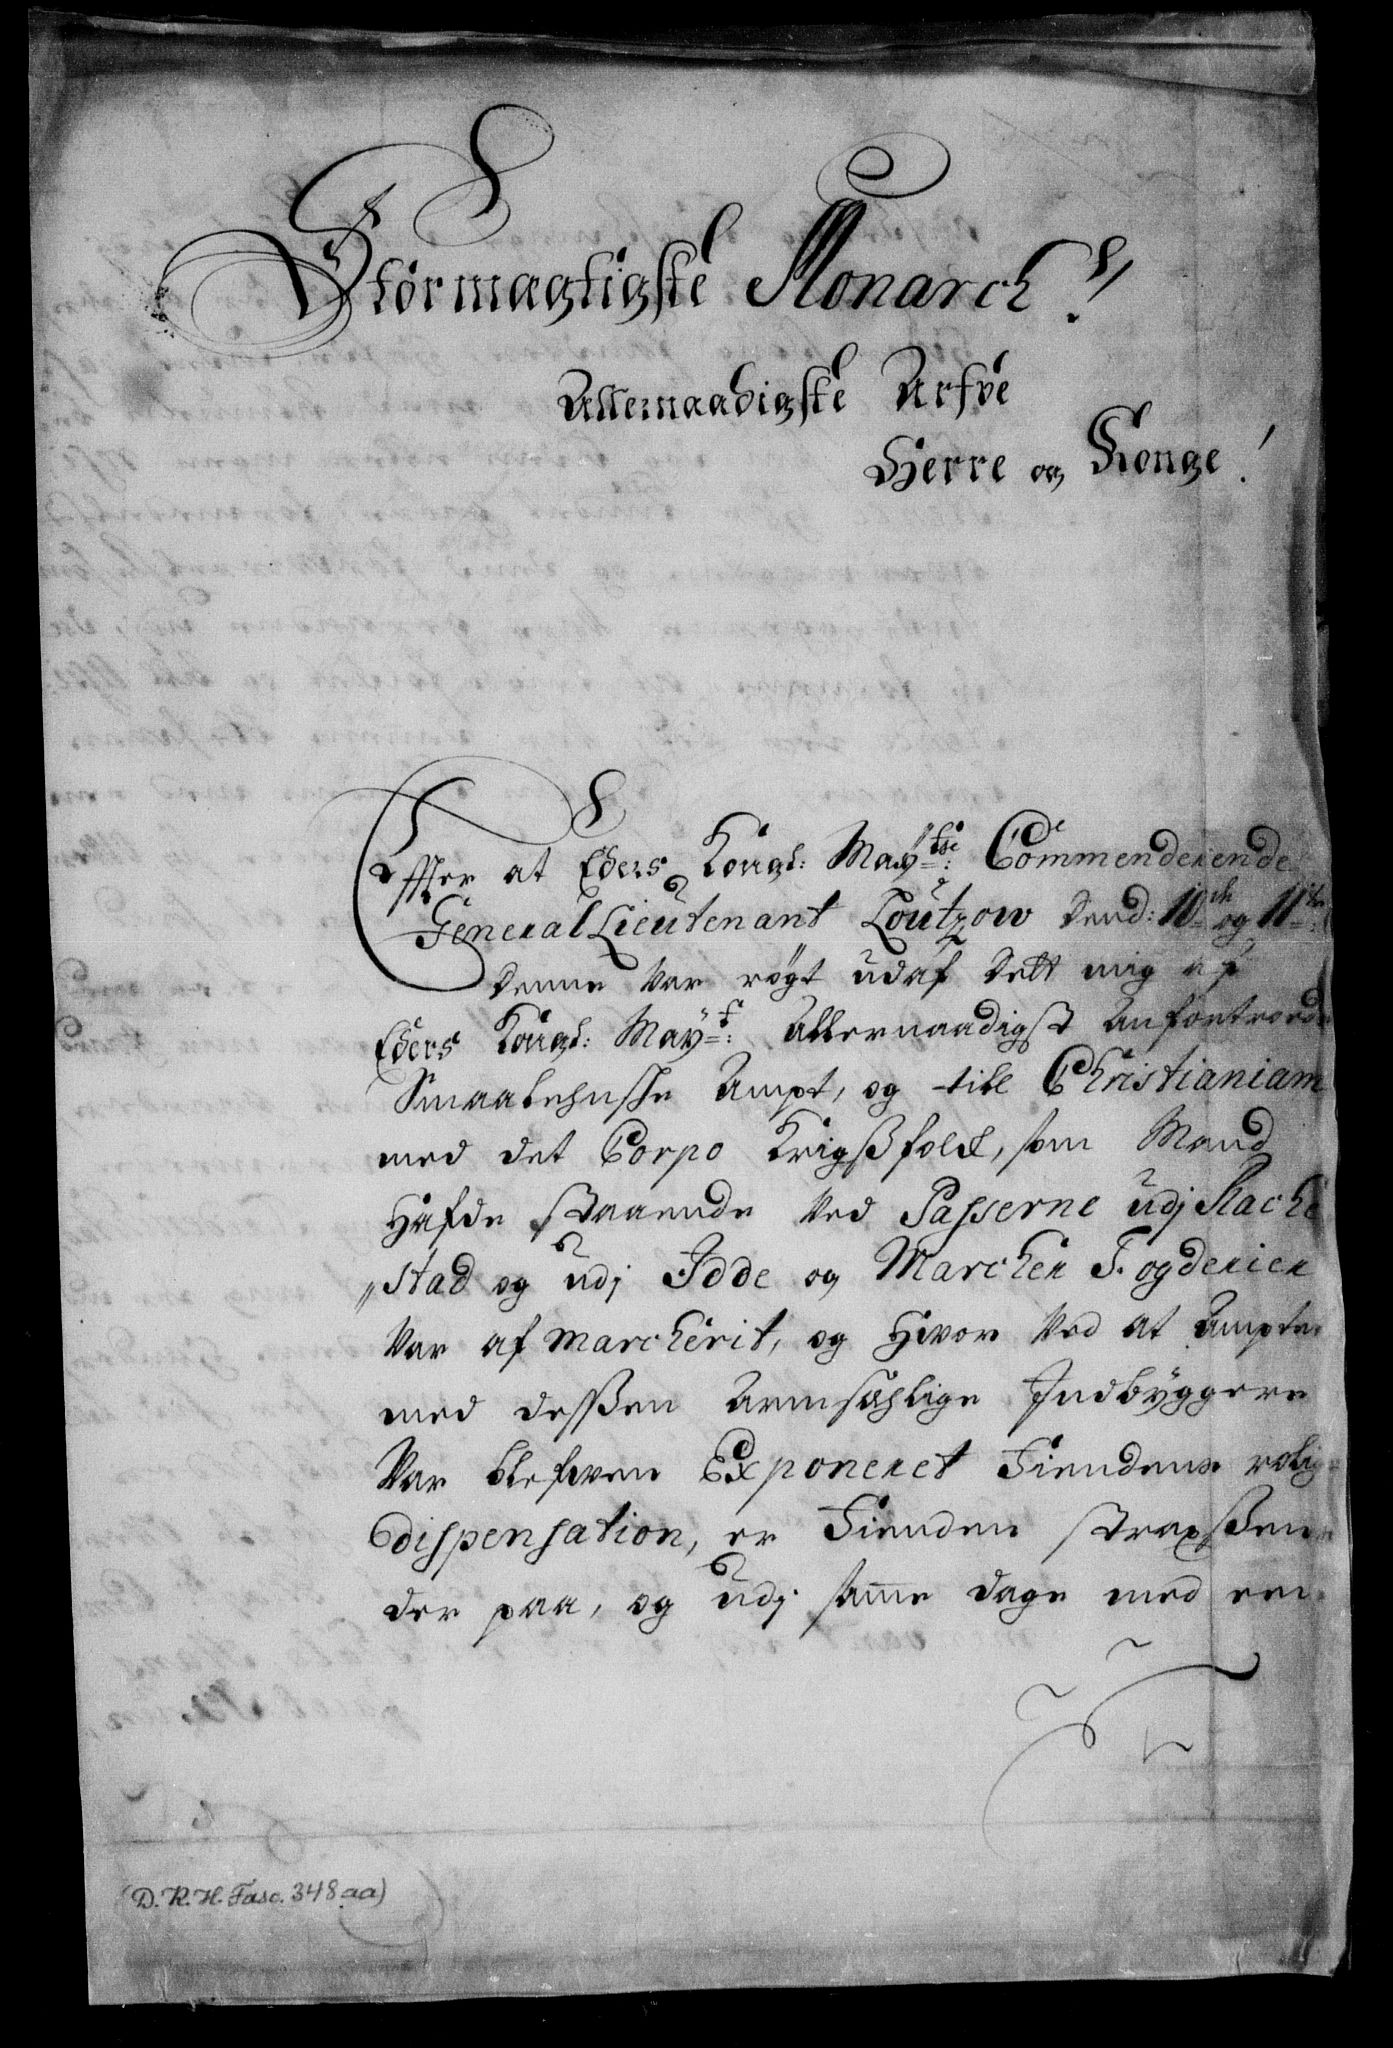 Stormagtigste Monarch!
Allernaadigste Arfve
Herre og Konge!
Effter at Eders Kongl: May:tts: Commenderende
General Lieutenant Loützow Dend: 10de og 11te:
Denne Var røgt udaf Dett mig af
Eders Kongl: May:t: Allernaadigst Anfortroede
Smaalehnsche Ampt, og till Christianiam
med det Corpo Krigsfolck, som Mand
Hafde staaende Ved Passerne udj Racke
"stad og udj Idde og Marcker Fogderier
Var af Marcherit, og Hvor Ved at Ampte
med dessen Armsählige Indbÿggere
Var blefven Exponeret Fiendens rolig
dispensation, er Fienden straxsen
der paa, og udj samme dage med een
(D. R. H. Fasc. 348 aa)